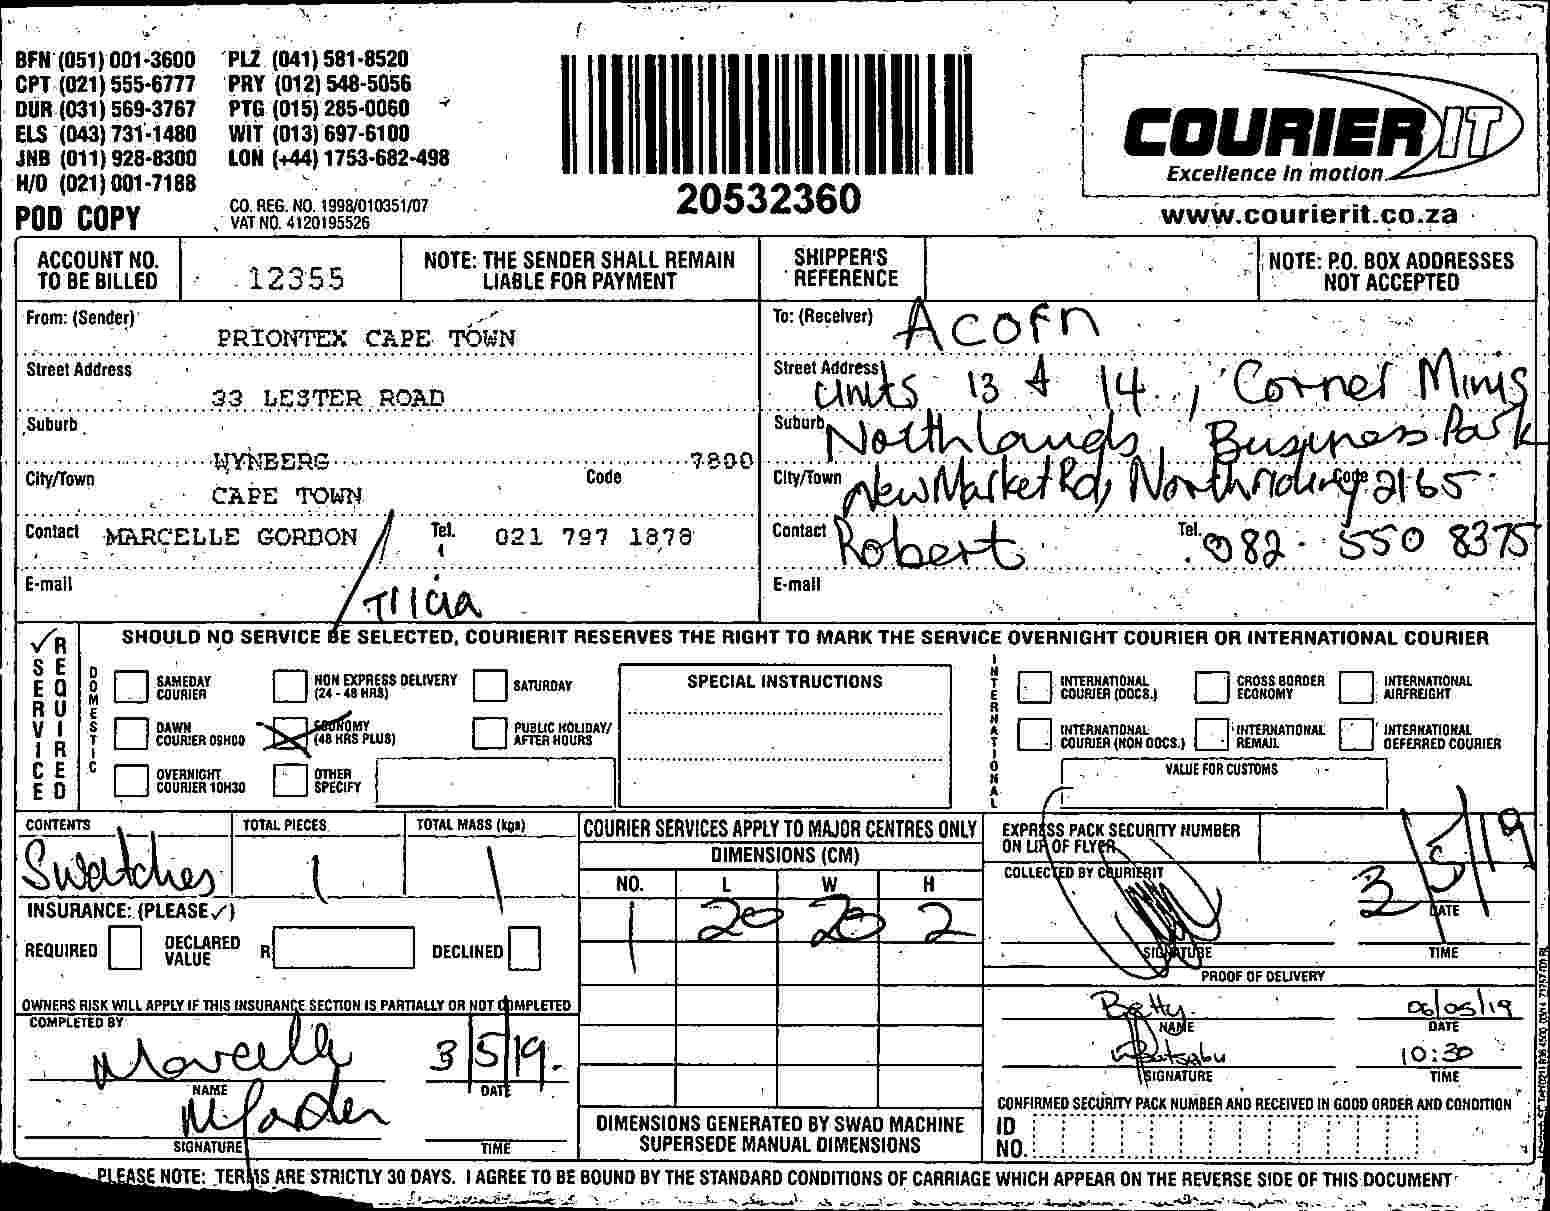 BFN (051) 001-3600 PLZ (041) 581-8520
CPT (021) 555-6777 PRY (012) 548-5056
DUR (031) 569-3767 PTG (015) 285-0060
ELS (043) 731-1480 WIT (013) 697-6100
JNB (011) 928-8300 LON (+44) 1753-682-498
H/O (021) 001-7188
POD COPY
CO. REG. NO. 1998/010351/07
VAT NO. 4120195526
20532360
COURIER IT
Excellence in motion
www.courierit.co.za
ACCOUNT NO. TO BE BILLED
12355
NOTE: THE SENDER SHALL REMAIN LIABLE FOR PAYMENT
SHIPPER'S REFERENCE
NOTE: P.O. BOX ADDRESSES NOT ACCEPTED
From: (Sender) PRIONTEX CAPE TOWN
Street Address 33 LESTER ROAD
Suburb WYNBERG 7800
City/Town CAPE TOWN Code
Contact MARCELLE GORDON / Tricia Tel. 021 797 1878
E-mail
To: (Receiver) Acorn
Street Address Units 13 & 14, Corner Mims
Suburb Northlands, Business Park
City/Town New Market Rd, Northriding Code 2165
Contact Robert Tel. 082 550 8375
E-mail
SERVICE REQUIRED
SHOULD NO SERVICE BE SELECTED, COURIERIT RESERVES THE RIGHT TO MARK THE SERVICE OVERNIGHT COURIER OR INTERNATIONAL COURIER
DOMESTIC
SAMEDAY COURIER
NON EXPRESS DELIVERY (24 - 48 HRS)
SATURDAY
DAWN COURIER 09H00
ECONOMY (48 HRS PLUS)
PUBLIC HOLIDAY/ AFTER HOURS
OVERNIGHT COURIER 10H30
OTHER SPECIFY
SPECIAL INSTRUCTIONS
INTERNATIONAL
INTERNATIONAL COURIER (DOCS.)
CROSS BORDER ECONOMY
INTERNATIONAL AIRFREIGHT
INTERNATIONAL COURIER (NON DOCS.)
INTERNATIONAL REMAIL
INTERNATIONAL DEFERRED COURIER
VALUE FOR CUSTOMS
CONTENTS Swatches
TOTAL PIECES 1
TOTAL MASS (kgs) 1
INSURANCE: (PLEASE ✓)
REQUIRED
DECLARED VALUE R
DECLINED
OWNERS RISK WILL APPLY IF THIS INSURANCE SECTION IS PARTIALLY OR NOT COMPLETED
COMPLETED BY
Marcelle 3/5/19.
NAME DATE
M Gordon
SIGNATURE TIME
COURIER SERVICES APPLY TO MAJOR CENTRES ONLY
DIMENSIONS (CM)
NO. L W H
1 20 20 2
DIMENSIONS GENERATED BY SWAD MACHINE SUPERSEDE MANUAL DIMENSIONS
EXPRESS PACK SECURITY NUMBER ON LIP OF FLYER
COLLECTED BY COURIERIT
3/5/19
DATE
SIGNATURE TIME
PROOF OF DELIVERY
Betty 06/05/19
NAME DATE
10:30
SIGNATURE TIME
CONFIRMED SECURITY PACK NUMBER AND RECEIVED IN GOOD ORDER AND CONDITION
ID NO.
PLEASE NOTE: TERMS ARE STRICTLY 30 DAYS. I AGREE TO BE BOUND BY THE STANDARD CONDITIONS OF CARRIAGE WHICH APPEAR ON THE REVERSE SIDE OF THIS DOCUMENT